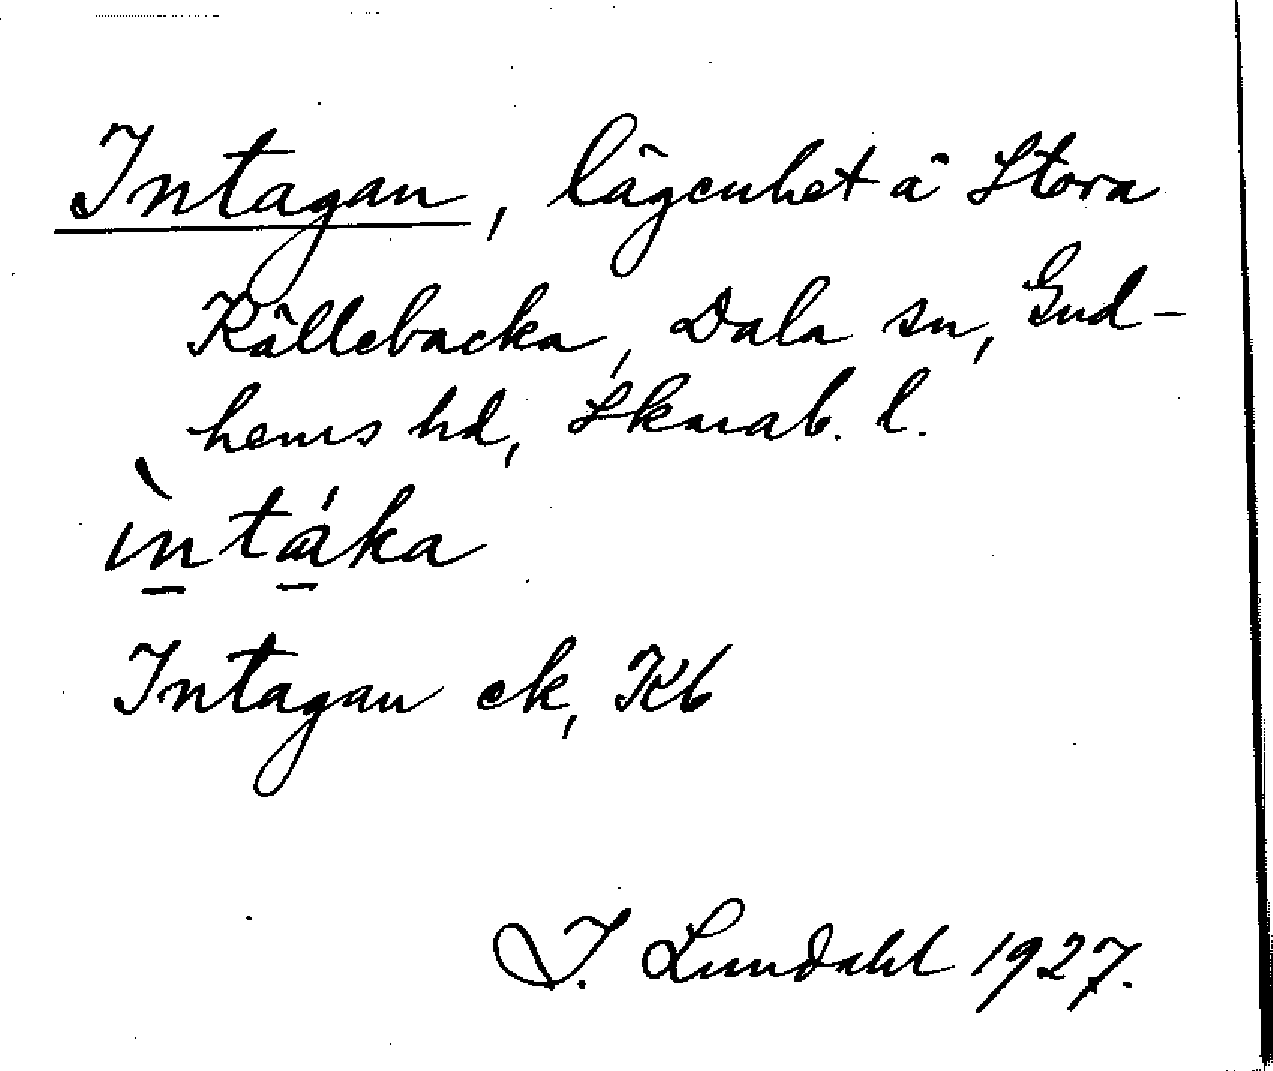 Intagan, lägenhet å Stora
Källebacka, Dala sn, Gud-
hems hd, Skarab. l.
ìntáka
Intagan ek, Kb
I. Lundahl 1927.